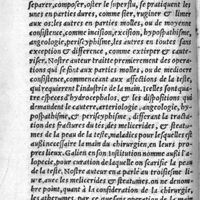 separer, composer, oster le superflu, se pratiquent les
unes en parties dures, comme sier, ruginer & limer
aux os: les autres en parties molles, ou de moyenne
consistence, comme incision, excision, hypospathisme,
angeologie, periscyphisme, les autres en toute sans
exception ou difference, comme extirper & caute-
riser. Nostre auteur traitte premierement des operatiõs
qui se font aux parties molles, ou de mediocre
consistence, commenceant aux affections de la teste,
qui requierent l'industrie de la main. Icelles sont qua-
tre especes l'hydrocephalos, & les dispositions qui
demandent le cautere, arteriologie, angeologie, hy-
pospathisme, & periscyphisme, differant la tracta-
tion des fractures du tés, des meliceridés, & steato-
mes de la peau de la teste, maladies pour lesquelles est
aussi necessaire la main du chirurgien, en leurs pro-
pres lieux. Galien en son institution nomme aussi l'a-
lopecie, pour curation de laquelle on scarifie la peau
de la teste. Nostre auteur en a parlé au troisiesme li-
ure, auec les meliceridés & steatomes. on ne denom-
bre point, quant à la consideration de la chirurgie,
les atheromes, par ce que